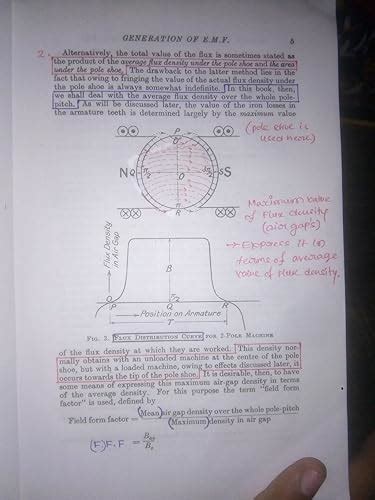 GENERATION OF E.M.F. 5
2. Alternatively, the total value of the flux is sometimes stated as
the product of the average flux density under the pole shoe and the area
under the pole shoe. The drawback to the latter method lies in the
fact that owing to fringing the value of the actual flux density under
the pole shoe is always somewhat indefinite. In this book, then,
we shall deal with the average flux density over the whole pole-
pitch. As will be discussed later, the value of the iron losses in
the armature teeth is determined largely by the maximum value
(pole shoe is
used here)
P
O
N Q π/2 O 3π/2 S S
π
R
Maximum value
of Flux density
(air gap's)
→ Express it in
terms of average
value of flux density.
Flux Density
in Air Gap
B
O π/2 π
P Q R
Position on Armature
T
FIG. 3. FLUX DISTRIBUTION CURVE FOR 2-POLE MACHINE
of the flux density at which they are worked. This density nor-
mally obtains with an unloaded machine at the centre of the pole
shoe, but with a loaded machine, owing to effects discussed later, it
occurs towards the tip of the pole shoe. It is desirable, then, to have
some means of expressing this maximum air-gap density in terms
of the average density. For this purpose the term "field form
factor" is used, defined by
Field form factor = (Mean) air gap density over the whole pole-pitch
(Maximum) density in air gap
(F) F.F =